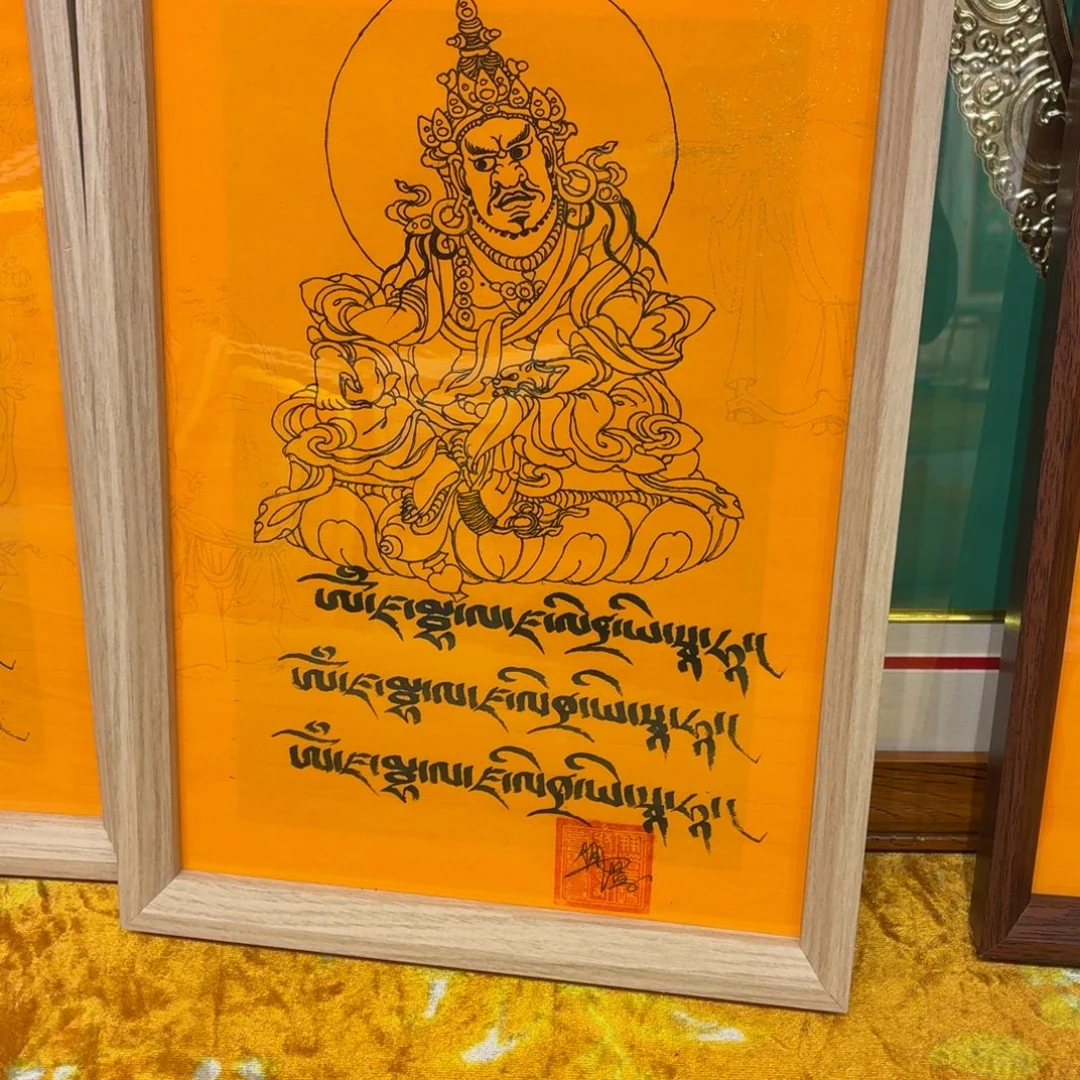 ཨོཾ་ཛ་མྦྷ་ལ་ཛ་ལེནྡྲ་ཡེ་སྭཱ་ཧཱ།
ཨོཾ་ཛ་མྦྷ་ལ་ཛ་ལེནྡྲ་ཡེ་སྭཱ་ཧཱ།
ཨོཾ་ཛ་མྦྷ་ལ་ཛ་ལེནྡྲ་ཡེ་སྭཱ་ཧཱ།